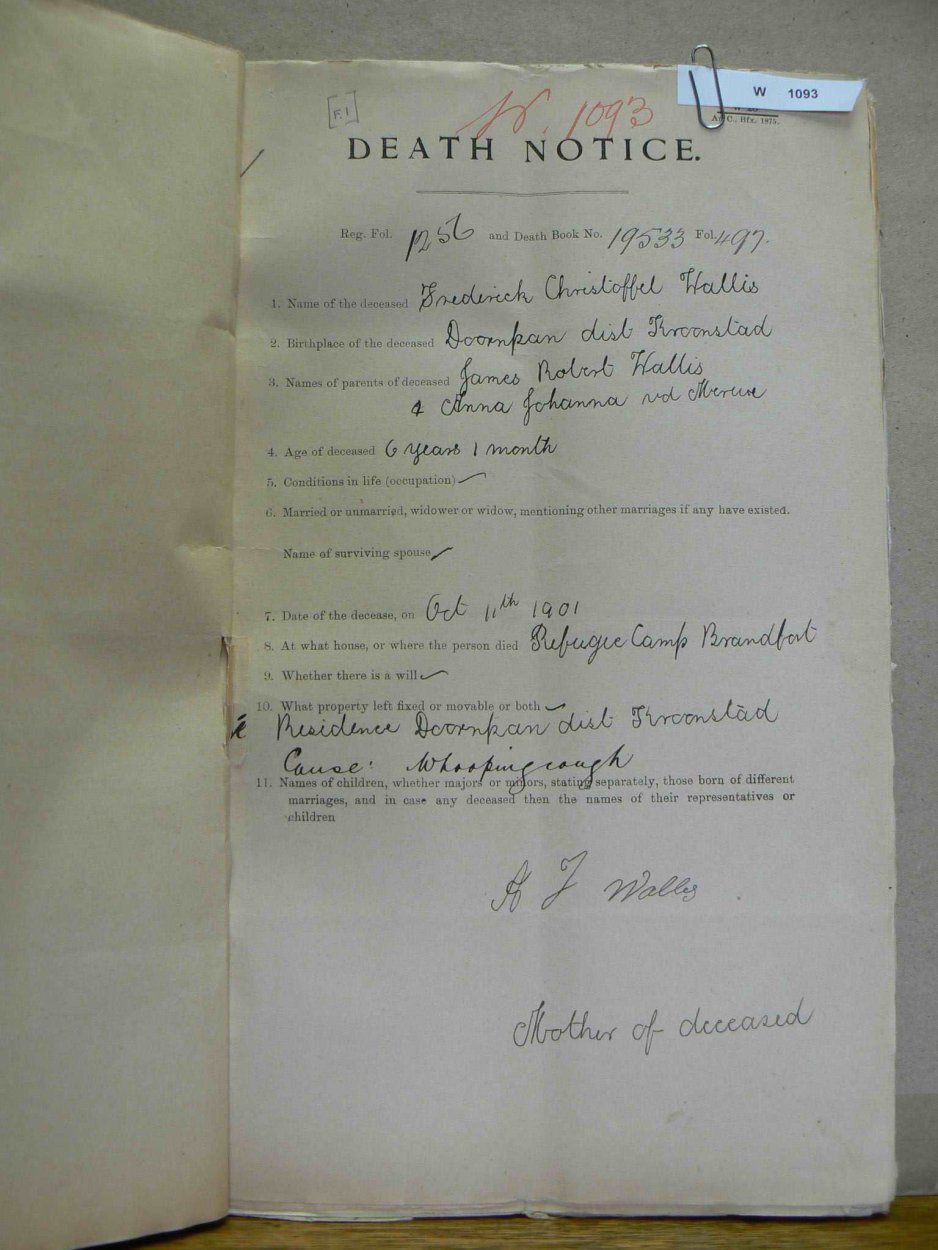 W 1093
F.1
W. 1093
Act C., Bfx. 1875.
DEATH NOTICE.
Reg. Fol. 1256 and Death Book No. 19533 Fol. 497.
1. Name of the deceased Frederick Christoffel Wallis
2. Birthplace of the deceased Doornpan dist Kroonstad
3. Names of parents of deceased James Robert Wallis
& Anna Johanna vd Merwe
4. Age of deceased 6 years 1 month
5. Conditions in life (occupation)
6. Married or unmarried, widower or widow, mentioning other marriages if any have existed.
Name of surviving spouse
7. Date of the decease, on Oct 11th 1901
8. At what house, or where the person died Refugee Camp Brandfort
9. Whether there is a will
10. What property left fixed or movable or both
Residence Doornpan dist Kroonstad
Cause: Whoopingcough
11. Names of children, whether majors or minors, stating separately, those born of different
marriages, and in case any deceased then the names of their representatives or
children
J Wallis
Mother of deceased